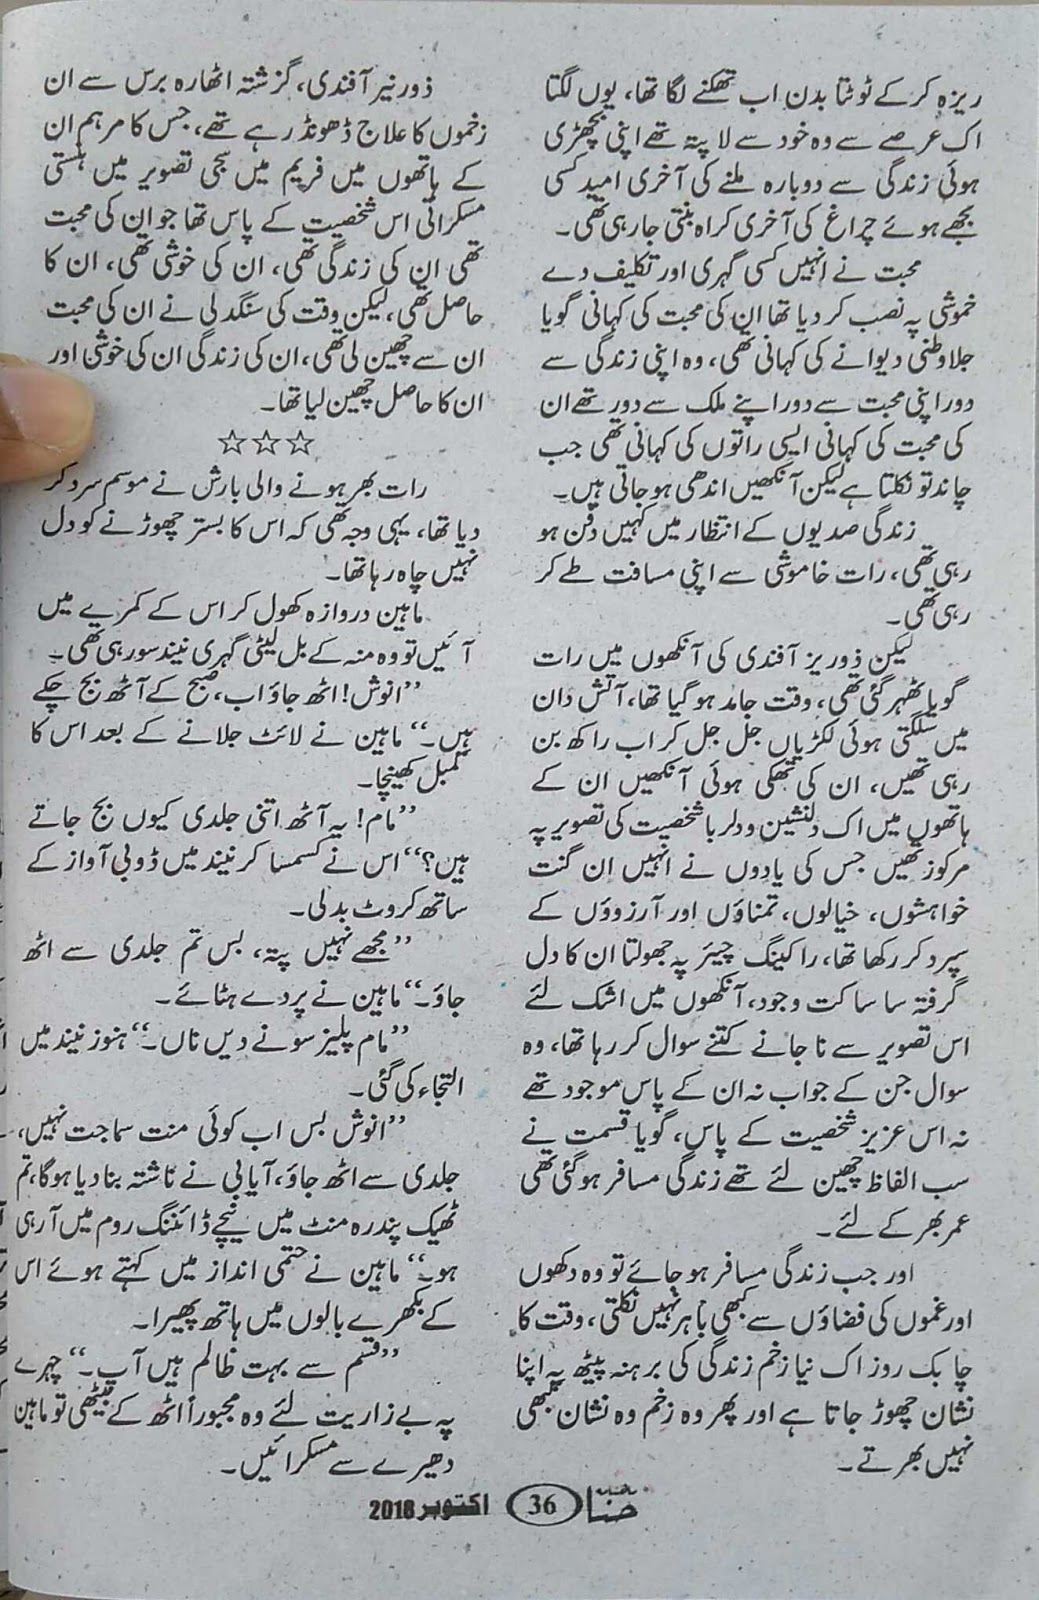 ریزہ کر کے ٹوٹتا بدن اب تھکنے لگا تھا، یوں لگتا
اک عرصے سے وہ خود سے لا پتہ تھے اپنی بچھڑی
ہوئی زندگی سے دوبارہ ملنے کی آخری امید کسی
بجھے ہوئے چراغ کی آخری کراہ بنتی جا رہی تھی۔
محبت نے انہیں کسی گہری اور تکلیف دے
خموشی پہ نصب کر دیا تھا ان کی محبت کی کہانی گویا
جلا وطنی دیوانے کی کہانی تھی، وہ اپنی زندگی سے
دور اپنی محبت سے دور اپنے ملک سے دور تھے ان
کی محبت کی کہانی ایسی راتوں کی کہانی تھی جب
چاند تو نکلتا ہے لیکن آنکھیں اندھی ہو جاتی ہیں۔
زندگی صدیوں کے انتظار میں کہیں دفن ہو
رہی تھی، رات خاموشی سے اپنی مسافت طے کر
رہی تھی۔
لیکن ذوریز آفندی کی آنکھوں میں رات
گویا ٹھہر گئی تھی، وقت جامد ہو گیا تھا، آتش دان
میں سلگتی ہوئی لکڑیاں جل جل کر اب راکھ بن
رہی تھیں، ان کی تھکی ہوئی آنکھیں ان کے
ہاتھوں میں اک دلنشین و دلربا شخصیت کی تصویر پہ
مرکوز تھیں جس کی یادوں نے انہیں ان گنت
خواہشوں، خیالوں، تمناؤں اور آرزوؤں کے
سپرد کر رکھا تھا، راکینگ چیئر پہ جھولتا ان کا دل
گرفتہ سا ساکت وجود، آنکھوں میں اشک لئے
اس تصویر سے نا جانے کتنے سوال کر رہا تھا، وہ
سوال جن کے جواب نہ ان کے پاس موجود تھے
نہ اس عزیز شخصیت کے پاس، گویا قسمت نے
سب الفاظ چھین لئے تھے زندگی مسافر ہو گئی تھی
عمر بھر کے لئے۔
اور جب زندگی مسافر ہو جائے تو وہ دکھوں
اور غموں کی فضاؤں سے کبھی باہر نہیں نکلتی، وقت کا
چابک روز اک نیا زخم زندگی کی برہنہ پیٹھ پہ اپنا
نشان چھوڑ جاتا ہے اور پھر وہ زخم وہ نشان کبھی
نہیں بھرتے۔
ذورنیر آفندی، گزشتہ اٹھارہ برس سے ان
زخموں کا علاج ڈھونڈ رہے تھے، جس کا مرہم ان
کے ہاتھوں میں فریم میں سجی تصویر میں ہنستی
مسکراتی اس شخصیت کے پاس تھا جو ان کی محبت
تھی ان کی زندگی تھی، ان کی خوشی تھی، ان کا
حاصل تھی، لیکن وقت کی سنگدلی نے ان کی محبت
ان سے چھین لی تھی، ان کی زندگی ان کی خوشی اور
ان کا حاصل چھین لیا تھا۔
☆☆☆
رات بھر ہونے والی بارش نے موسم سرد کر
دیا تھا، یہی وجہ تھی کہ اس کا بستر چھوڑنے کو دل
نہیں چاہ رہا تھا۔
ماہین دروازہ کھول کر اس کے کمرے میں
آئیں تو وہ منہ کے بل لیٹی گہری نیند سو رہی تھی۔
’’انوش! اٹھ جاؤ اب، صبح کے آٹھ بج چکے
ہیں۔‘‘ ماہین نے لائٹ جلانے کے بعد اس کا
کمبل کھینچا۔
’’مام! یہ آٹھ اتنی جلدی کیوں بج جاتے
ہیں؟‘‘ اس نے کسمسا کر نیند میں ڈوبی آواز کے
ساتھ کروٹ بدلی۔
’’مجھے نہیں پتہ، بس تم جلدی سے اٹھ
جاؤ۔‘‘ ماہین نے پردے ہٹائے۔
’’مام پلیز سونے دیں ناں۔‘‘ ہنوز نیند میں
التجاء کی گئی۔
’’انوش بس اب کوئی منت سماجت نہیں،
جلدی سے اٹھ جاؤ، آیا بی نے ناشتہ بنا دیا ہوگا، تم
ٹھیک پندرہ منٹ میں نیچے ڈائننگ روم میں آ رہی
ہو۔‘‘ ماہین نے حتمی انداز میں کہتے ہوئے اس
کے بکھرے بالوں میں ہاتھ پھیرا۔
’’قسم سے بہت ظالم ہیں آپ۔‘‘ چہرے
پہ بے زاریت لئے وہ مجبوراً اٹھ کے بیٹھی تو ماہین
دھیرے سے مسکرائیں۔
حنا 36 اکتوبر 2018